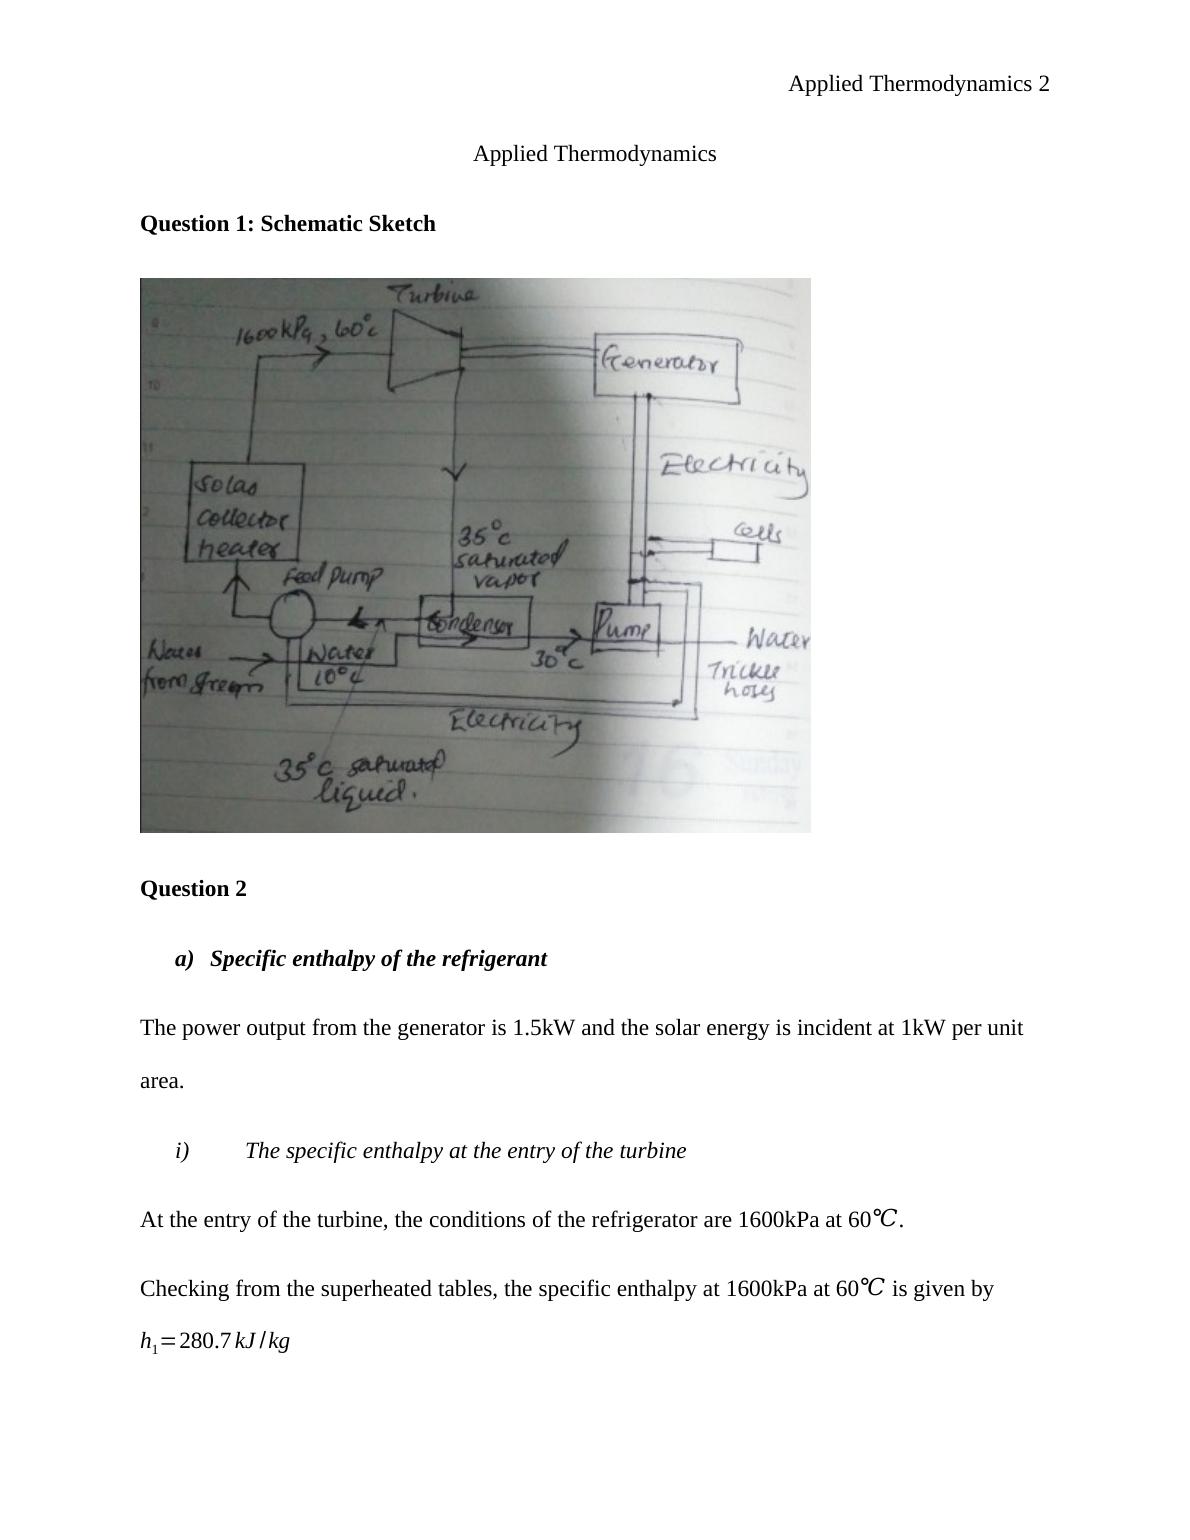 Applied Thermodynamics 2
Applied Thermodynamics
Question 1: Schematic Sketch
Turbine
1600kPa, 60°c
Generator
Electricity
Solar
collector
heater
Cells
35°c
saturated
vapor
Feed pump
Condensor
Pump
Water
Water
from stream
Water
10°c
30°c
Trickle
hoses
Electricity
35°c saturated
liquid.
Question 2
a) Specific enthalpy of the refrigerant
The power output from the generator is 1.5kW and the solar energy is incident at 1kW per unit
area.
i) The specific enthalpy at the entry of the turbine
At the entry of the turbine, the conditions of the refrigerator are 1600kPa at 60℃.
Checking from the superheated tables, the specific enthalpy at 1600kPa at 60℃ is given by
h₁=280.7 kJ/kg